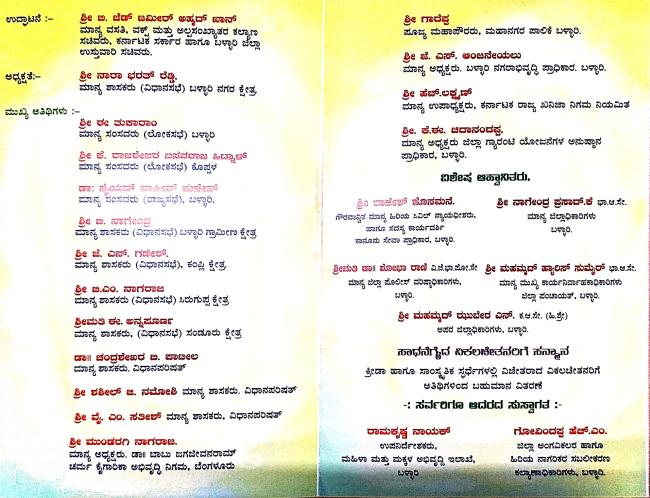 ಉದ್ಘಾಟನೆ :- ಶ್ರೀ ಬಿ. ಜೆಡ್ ಜಮೀರ್ ಅಹ್ಮದ್ ಖಾನ್
ಮಾನ್ಯ ವಸತಿ, ವಕ್ಫ್ ಮತ್ತು ಅಲ್ಪಸಂಖ್ಯಾತರ ಕಲ್ಯಾಣ
ಸಚಿವರು, ಕರ್ನಾಟಕ ಸರ್ಕಾರ ಹಾಗೂ ಬಳ್ಳಾರಿ ಜಿಲ್ಲಾ
ಉಸ್ತುವಾರಿ ಸಚಿವರು.
ಅಧ್ಯಕ್ಷತೆ:- ಶ್ರೀ ನಾರಾ ಭರತ್ ರೆಡ್ಡಿ.
ಮಾನ್ಯ ಶಾಸಕರು (ವಿಧಾನಸಭೆ) ಬಳ್ಳಾರಿ ನಗರ ಕ್ಷೇತ್ರ.
ಮುಖ್ಯ ಅತಿಥಿಗಳು :-
ಶ್ರೀ ಈ ತುಕಾರಾಂ
ಮಾನ್ಯ ಸಂಸದರು (ಲೋಕಸಭೆ) ಬಳ್ಳಾರಿ
ಶ್ರೀ ಕೆ. ರಾಜಶೇಖರ ಬಸವರಾಜ ಹಿಟ್ನಾಳ್
ಮಾನ್ಯ ಸಂಸದರು (ಲೋಕಸಭೆ) ಕೊಪ್ಪಳ
ಡಾ: ಸೈಯದ್ ನಾಸೀರ್ ಹುಸೇನ್
ಮಾನ್ಯ ಸಂಸದರು (ರಾಜ್ಯಸಭೆ), ಬಳ್ಳಾರಿ.
ಶ್ರೀ ಬಿ. ನಾಗೇಂದ್ರ
ಮಾನ್ಯ ಶಾಸಕರು (ವಿಧಾನಸಭೆ) ಬಳ್ಳಾರಿ ಗ್ರಾಮೀಣ ಕ್ಷೇತ್ರ
ಶ್ರೀ ಜೆ. ಎನ್. ಗಣೇಶ್.
ಮಾನ್ಯ ಶಾಸಕರು (ವಿಧಾನಸಭೆ), ಕಂಪ್ಲಿ ಕ್ಷೇತ್ರ.
ಶ್ರೀ ಬಿ.ಎಂ. ನಾಗರಾಜ
ಮಾನ್ಯ ಶಾಸಕರು (ವಿಧಾನಸಭೆ) ಸಿರುಗುಪ್ಪ ಕ್ಷೇತ್ರ
ಶ್ರೀಮತಿ ಈ. ಅನ್ನಪೂರ್ಣ
ಮಾನ್ಯ ಶಾಸಕರು, (ವಿಧಾನಸಭೆ) ಸಂಡೂರು ಕ್ಷೇತ್ರ
ಡಾ॥ ಚಂದ್ರಶೇಖರ ಬಿ. ಪಾಟೀಲ
ಮಾನ್ಯ ಶಾಸಕರು. ವಿಧಾನಪರಿಷತ್
ಶ್ರೀ ಶಶೀಲ್ ಜಿ. ನಮೋಶಿ ಮಾನ್ಯ ಶಾಸಕರು. ವಿಧಾನಪರಿಷತ್
ಶ್ರೀ ವೈ. ಎಂ. ಸತೀಶ್ ಮಾನ್ಯ ಶಾಸಕರು, ವಿಧಾನಪರಿಷತ್
ಶ್ರೀ ಮುಂಡರಗಿ ನಾಗರಾಜ.
ಮಾನ್ಯ ಅಧ್ಯಕ್ಷರು, ಡಾ: ಬಾಬು ಜಗಜೀವನರಾಮ್
ಚರ್ಮ ಕೈಗಾರಿಕಾ ಅಭಿವೃದ್ಧಿ ನಿಗಮ, ಬೆಂಗಳೂರು
ಶ್ರೀ ಗಾದೆಪ್ಪ
ಪೂಜ್ಯ ಮಹಾಪೌರರು, ಮಹಾನಗರ ಪಾಲಿಕೆ ಬಳ್ಳಾರಿ.
ಶ್ರೀ ಜೆ. ಎಸ್. ಆಂಜನೇಯಲು
ಮಾನ್ಯ ಅಧ್ಯಕ್ಷರು. ಬಳ್ಳಾರಿ ನಗರಾಭಿವೃದ್ಧಿ ಪ್ರಾಧಿಕಾರ. ಬಳ್ಳಾರಿ.
ಶ್ರೀ ಹೆಚ್.ಲಕ್ಷ್ಮಣ್
ಮಾನ್ಯ ಉಪಾಧ್ಯಕ್ಷರು, ಕರ್ನಾಟಕ ರಾಜ್ಯ ಖನಿಜಾ ನಿಗಮ ನಿಯಮಿತ
ಶ್ರೀ. ಕೆ.ಈ. ಚಿದಾನಂದಪ್ಪ.
ಮಾನ್ಯ ಅಧ್ಯಕ್ಷರು ಜಿಲ್ಲಾ ಗ್ಯಾರಂಟಿ ಯೋಜನೆಗಳ ಅನುಷ್ಠಾನ
ಪ್ರಾಧಿಕಾರ, ಬಳ್ಳಾರಿ.
ವಿಶೇಷ ಆಹ್ವಾನಿತರು.
ಶ್ರೀ ರಾಜೇಶ್ ಹೊಸಮನೆ.
ಗೌರವಾನ್ವಿತ ಮಾನ್ಯ ಹಿರಿಯ ಸಿವಿಲ್ ನ್ಯಾಯಾಧೀಶರು,
ಹಾಗೂ ಸದಸ್ಯ ಕಾರ್ಯದರ್ಶಿ
ಕಾನೂನು ಸೇವಾ ಪ್ರಾಧಿಕಾರ, ಬಳ್ಳಾರಿ.
ಶ್ರೀ ನಾಗೇಂದ್ರ ಪ್ರಸಾದ್.ಕೆ ಭಾ.ಆ.ಸೇ.
ಮಾನ್ಯ ಜಿಲ್ಲಾಧಿಕಾರಿಗಳು
ಬಳ್ಳಾರಿ.
ಶ್ರೀಮತಿ ಡಾ॥ ಶೋಭಾ ರಾಣಿ ವಿ.ಜೆ.ಭಾ.ಪೋ.ಸೇ
ಮಾನ್ಯ ಜಿಲ್ಲಾ ಪೊಲೀಸ್ ವರಿಷ್ಠಾಧಿಕಾರಿಗಳು,
ಬಳ್ಳಾರಿ.
ಶ್ರೀ ಮಹಮ್ಮದ್ ಹ್ಯಾರಿಸ್ ಸುಮೈರ್ ಭಾ.ಆ.ಸೇ.
ಮಾನ್ಯ ಮುಖ್ಯ ಕಾರ್ಯನಿರ್ವಾಹಕಾಧಿಕಾರಿಗಳು
ಜಿಲ್ಲಾ ಪಂಚಾಯತ್, ಬಳ್ಳಾರಿ.
ಶ್ರೀ ಮಹಮ್ಮದ್ ಝುಬೇರ ಎನ್. ಕ.ಆ.ಸೇ. (ಹಿ.ಶ್ರೇ)
ಅಪರ ಜಿಲ್ಲಾಧಿಕಾರಿಗಳು, ಬಳ್ಳಾರಿ.
ಸಾಧನೆಗೈದ ವಿಕಲಚೇತನರಿಗೆ ಸನ್ಮಾನ
ಕ್ರೀಡಾ ಹಾಗೂ ಸಾಂಸ್ಕೃತಿಕ ಸ್ಪರ್ಧೆಗಳಲ್ಲಿ ವಿಜೇತರಾದ ವಿಕಲಚೇತನರಿಗೆ
ಅತಿಥಿಗಳಿಂದ ಬಹುಮಾನ ವಿತರಣೆ
-: ಸರ್ವರಿಗೂ ಆದರದ ಸುಸ್ವಾಗತ :-
ರಾಮಕೃಷ್ಣ ನಾಯಕ್
ಉಪನಿರ್ದೇಶಕರು,
ಮಹಿಳಾ ಮತ್ತು ಮಕ್ಕಳ ಅಭಿವೃದ್ಧಿ ಇಲಾಖೆ,
ಬಳ್ಳಾರಿ
ಗೋವಿಂದಪ್ಪ ಹೆಚ್.ಎಂ.
ಜಿಲ್ಲಾ ಅಂಗವಿಕಲರ ಹಾಗೂ
ಹಿರಿಯ ನಾಗರಿಕರ ಸಬಲೀಕರಣ
ಕಲ್ಯಾಣಾಧಿಕಾರಿಗಳು, ಬಳ್ಳಾರಿ.